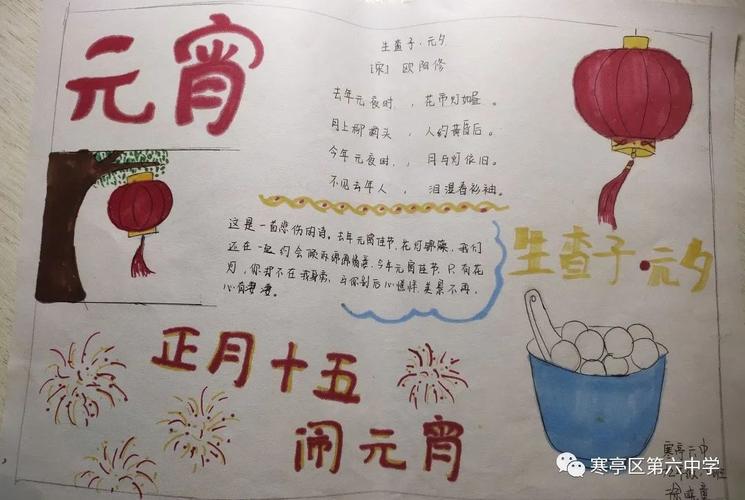 元宵
生查子·元夕
[宋] 欧阳修
去年元夜时，花市灯如昼。
月上柳梢头，人约黄昏后。
今年元夜时，月与灯依旧。
不见去年人，泪湿春衫袖。
这是一首悲伤闲诗。去年元宵佳节，花灯
我们
还在一起约会
今年元宵佳节，只有花
灯，你却不在我身旁，与你别后心憔悴美景不再，
心自凄凄。
生查子·元夕
正月十五
闹元宵
寒亭六中
班
寒亭区第六中学